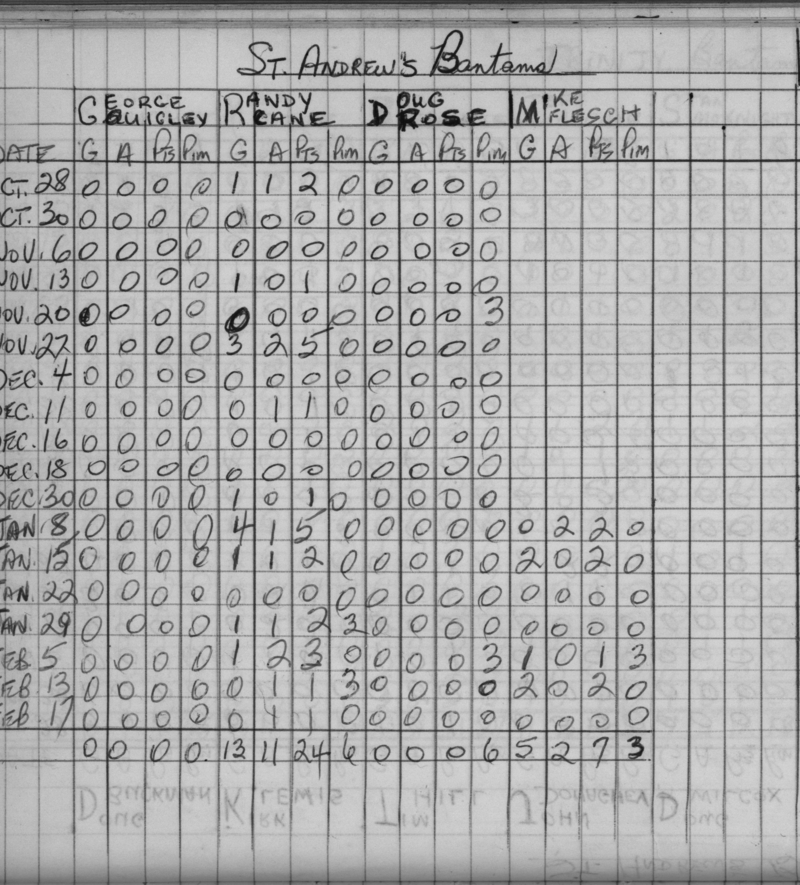 ST. ANDREW'S Bantams
GEORGE QUIGLEY RANDY CANE DOUG ROSE MIKE FLESCH
DATE G A Pts Pim G A Pts Pim G A Pts Pim G A Pts Pim
CT. 28 0 0 0 0 1 1 2 0 0 0 0 0
CT. 30 0 0 0 0 0 0 0 0 0 0 0 0
NOV. 6 0 0 0 0 0 0 0 0 0 0 0 0
NOV. 13 0 0 0 0 1 0 1 0 0 0 0 0
OV. 20 0 0 0 0 0 0 0 0 0 0 0 3
NOV. 27 0 0 0 0 3 2 5 0 0 0 0 0
DEC. 4 0 0 0 0 0 0 0 0 0 0 0 0
DEC. 11 0 0 0 0 0 1 1 0 0 0 0 0
EC. 16 0 0 0 0 0 0 0 0 0 0 0 0
DEC. 18 0 0 0 0 0 0 0 0 0 0 0 0
DEC. 30 0 0 0 0 1 0 1 0 0 0 0 0
JAN 8 0 0 0 0 4 1 5 0 0 0 0 0 0 2 2 0
AN. 15 0 0 0 0 1 1 2 0 0 0 0 0 2 0 2 0
AN. 22 0 0 0 0 0 0 0 0 0 0 0 0 0 0 0 0
AN. 29 0 0 0 0 1 1 2 3 0 0 0 0 0 0 0 0
EB 5 0 0 0 0 1 2 3 0 0 0 0 3 1 0 1 3
EB. 13 0 0 0 0 0 1 1 3 0 0 0 0 2 0 2 0
EB. 17 0 0 0 0 0 1 1 0 0 0 0 0 0 0 0 0
0 0 0 0 13 11 24 6 0 0 0 6 5 2 7 3